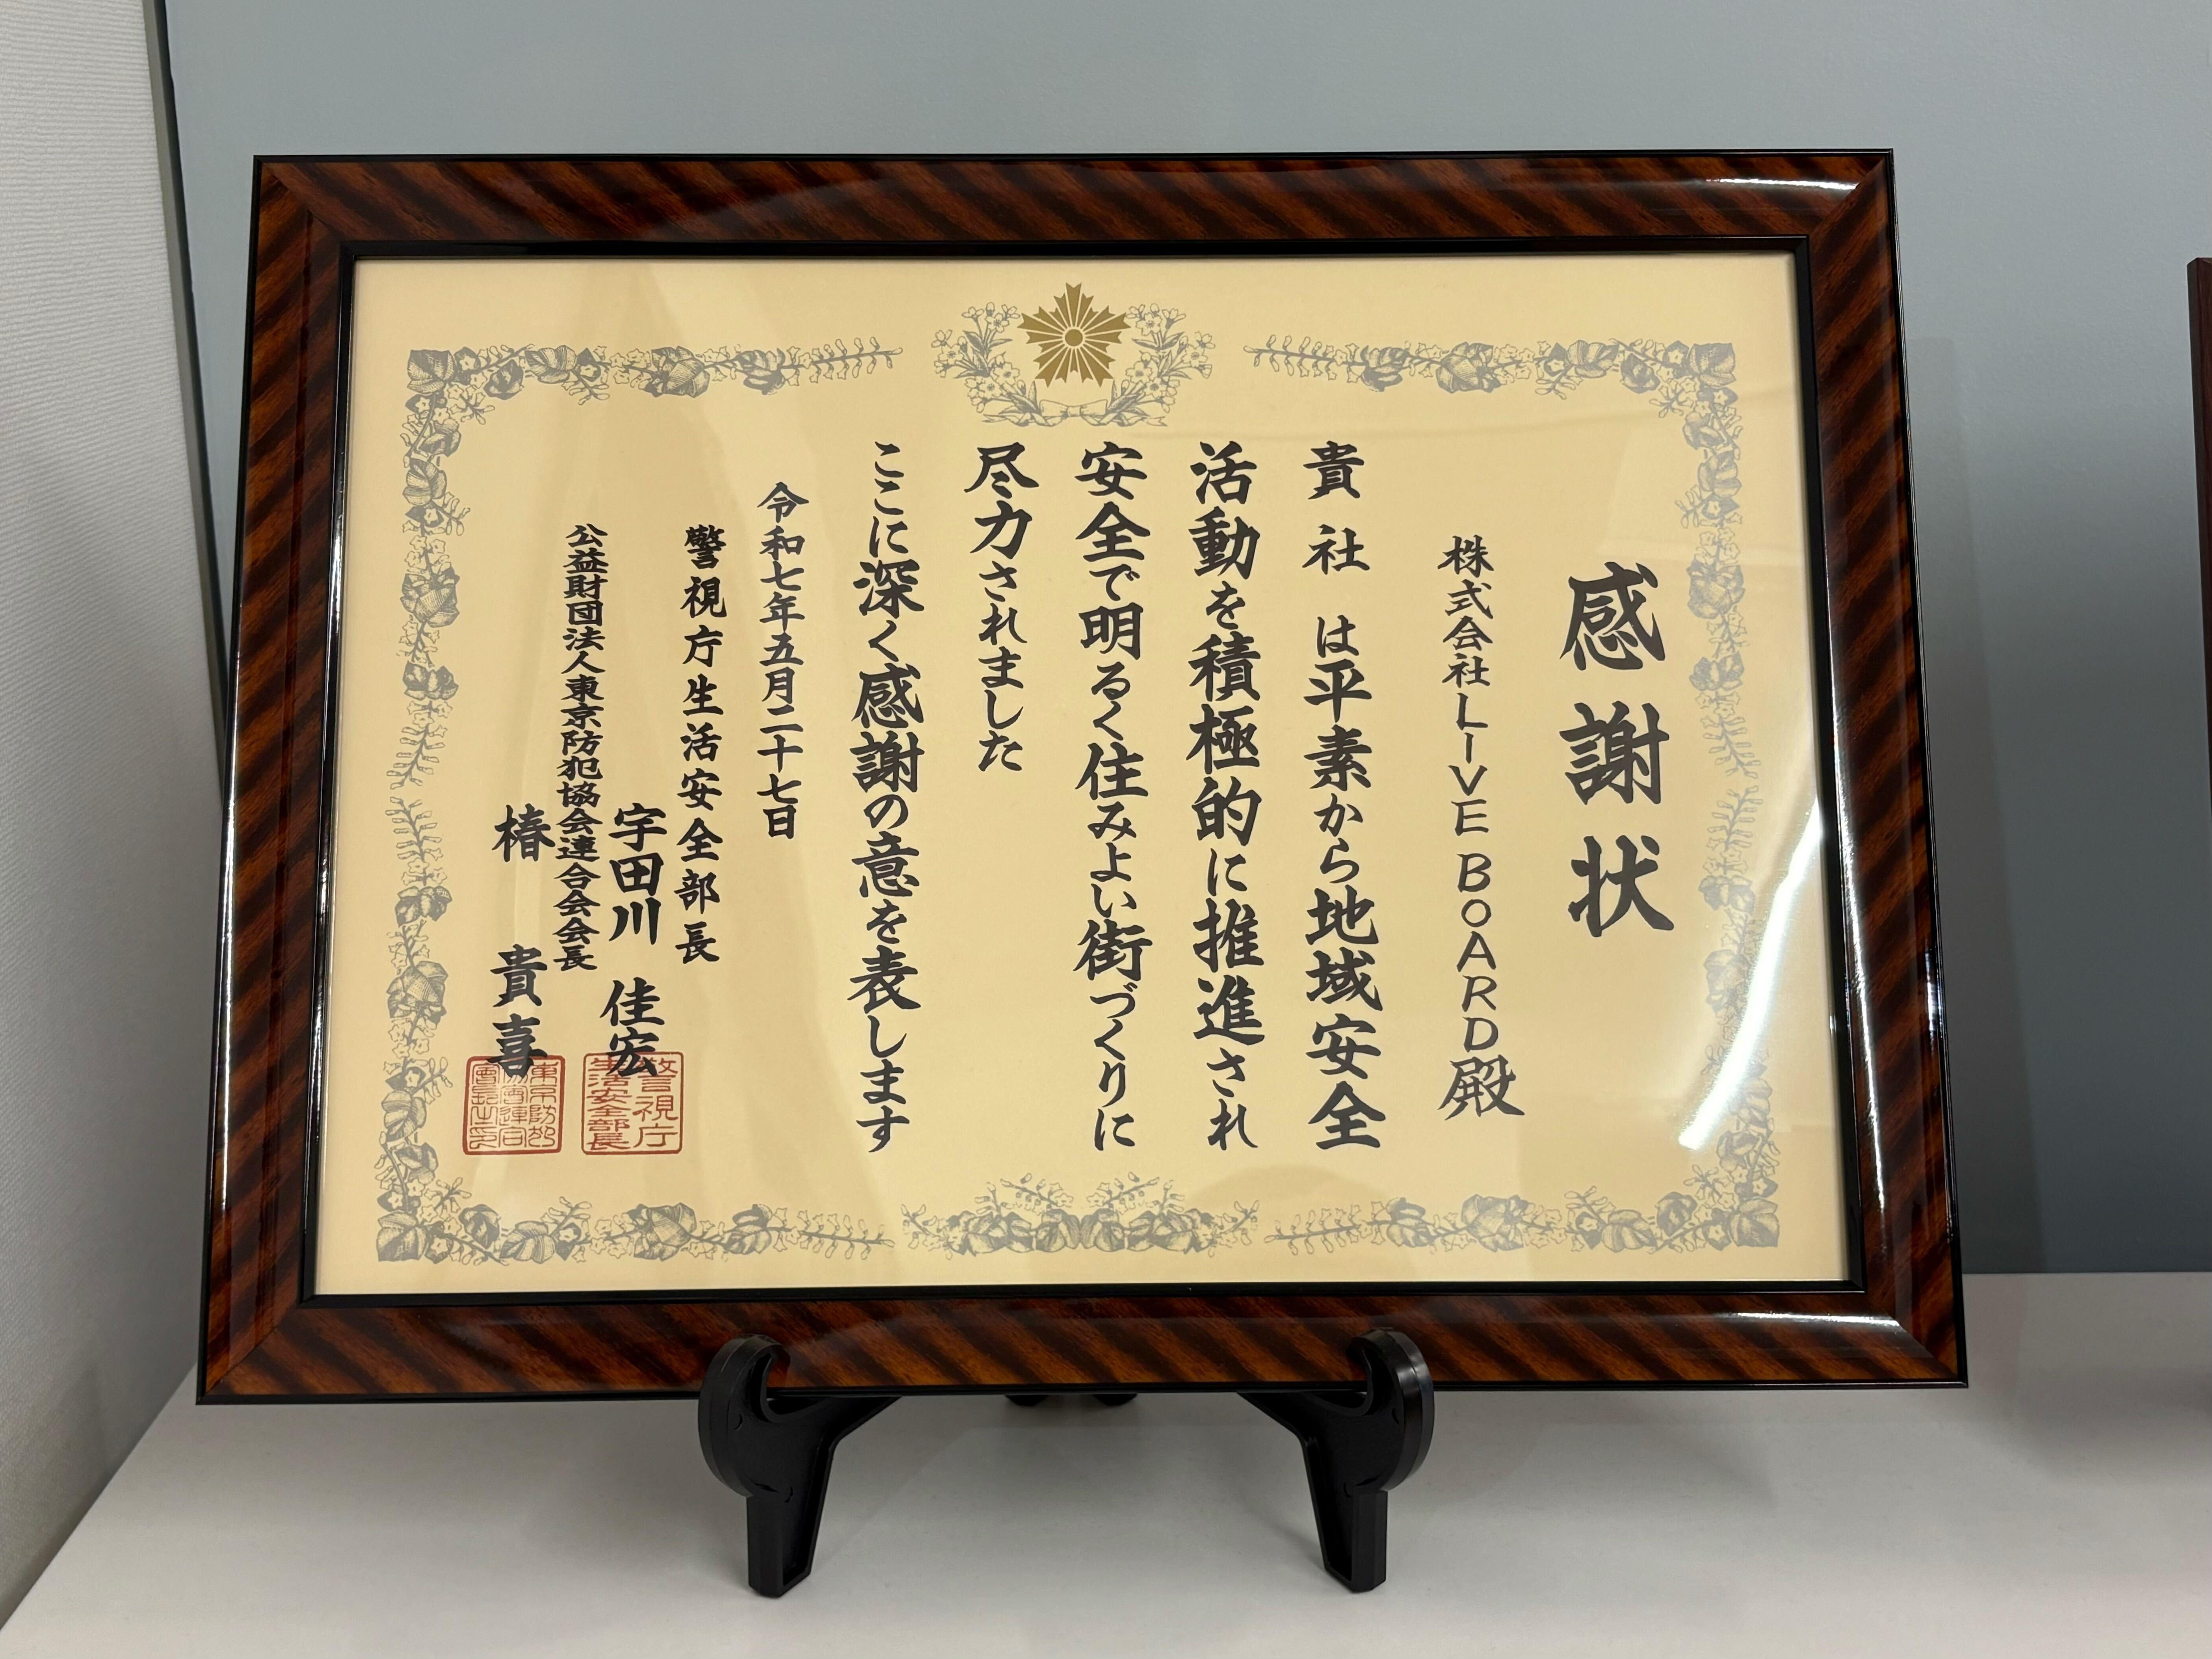 感謝状
株式会社LIVE BOARD殿
貴社は平素から地域安全
活動を積極的に推進され
安全で明るく住みよい街づくりに
尽力されました
ここに深く感謝の意を表します
令和七年五月二十七日
警視庁生活安全部長
宇田川 佳宏
警視庁
生活安全部長
公益財団法人東京防犯協会連合会会長
椿 貴喜
東京防犯
協會連合
會長之印